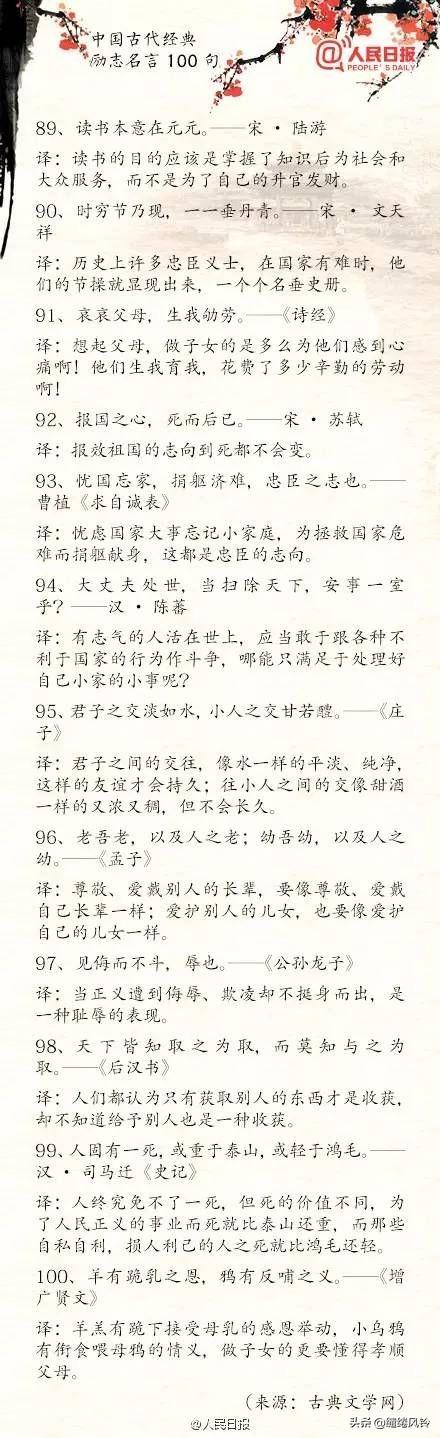 中国古代经典
励志名言100句
@人民日报
PEOPLE'S DAILY
89、读书本意在元元。——宋·陆游
译：读书的目的应该是掌握了知识后为社会和
大众服务，而不是为了自己的升官发财。
90、时穷节乃现，一一垂丹青。——宋·文天
祥
译：历史上许多忠臣义士，在国家有难时，他
们的节操就显现出来，一个个名垂史册。
91、哀哀父母，生我劬劳。——《诗经》
译：想起父母，做子女的是多么为他们感到心
痛啊！他们生我育我，花费了多少辛勤的劳动
啊！
92、报国之心，死而后已。——宋·苏轼
译：报效祖国的志向到死都不会变。
93、忧国忘家，捐躯济难，忠臣之志也。——
曹植《求自诚表》
译：忧虑国家大事忘记小家庭，为拯救国家危
难而捐躯献身，这都是忠臣的志向。
94、大丈夫处世，当扫除天下，安事一室
乎？——汉·陈蕃
译：有志气的人活在世上，应当敢于跟各种不
利于国家的行为作斗争，哪能只满足于处理好
自己小家的小事呢？
95、君子之交淡如水，小人之交甘若醴。——《庄
子》
译：君子之间的交往，像水一样的平淡、纯净，
这样的友谊才会持久；往小人之间的交像甜酒
一样的又浓又稠，但不会长久。
96、老吾老，以及人之老；幼吾幼，以及人之
幼。——《孟子》
译：尊敬、爱戴别人的长辈，要像尊敬、爱戴
自己长辈一样；爱护别人的儿女，也要像爱护
自己的儿女一样。
97、见侮而不斗，辱也。——《公孙龙子》
译：当正义遭到侮辱、欺凌却不挺身而出，是
一种耻辱的表现。
98、天下皆知取之为取，而莫知与之为
取。——《后汉书》
译：人们都认为只有获取别人的东西才是收获，
却不知道给予别人也是一种收获。
99、人固有一死，或重于泰山，或轻于鸿毛。——
汉·司马迁《史记》
译：人终究免不了一死，但死的价值不同，为
了人民正义的事业而死就比泰山还重，而那些
自私自利，损人利己的人之死就比鸿毛还轻。
100、羊有跪乳之恩，鸦有反哺之义。——《增
广贤文》
译：羊羔有跪下接受母乳的感恩举动，小乌鸦
有衔食喂母鸦的情义，做子女的更要懂得孝顺
父母。
（来源：古典文学网）
@人民日报
头条@缠绕风铃